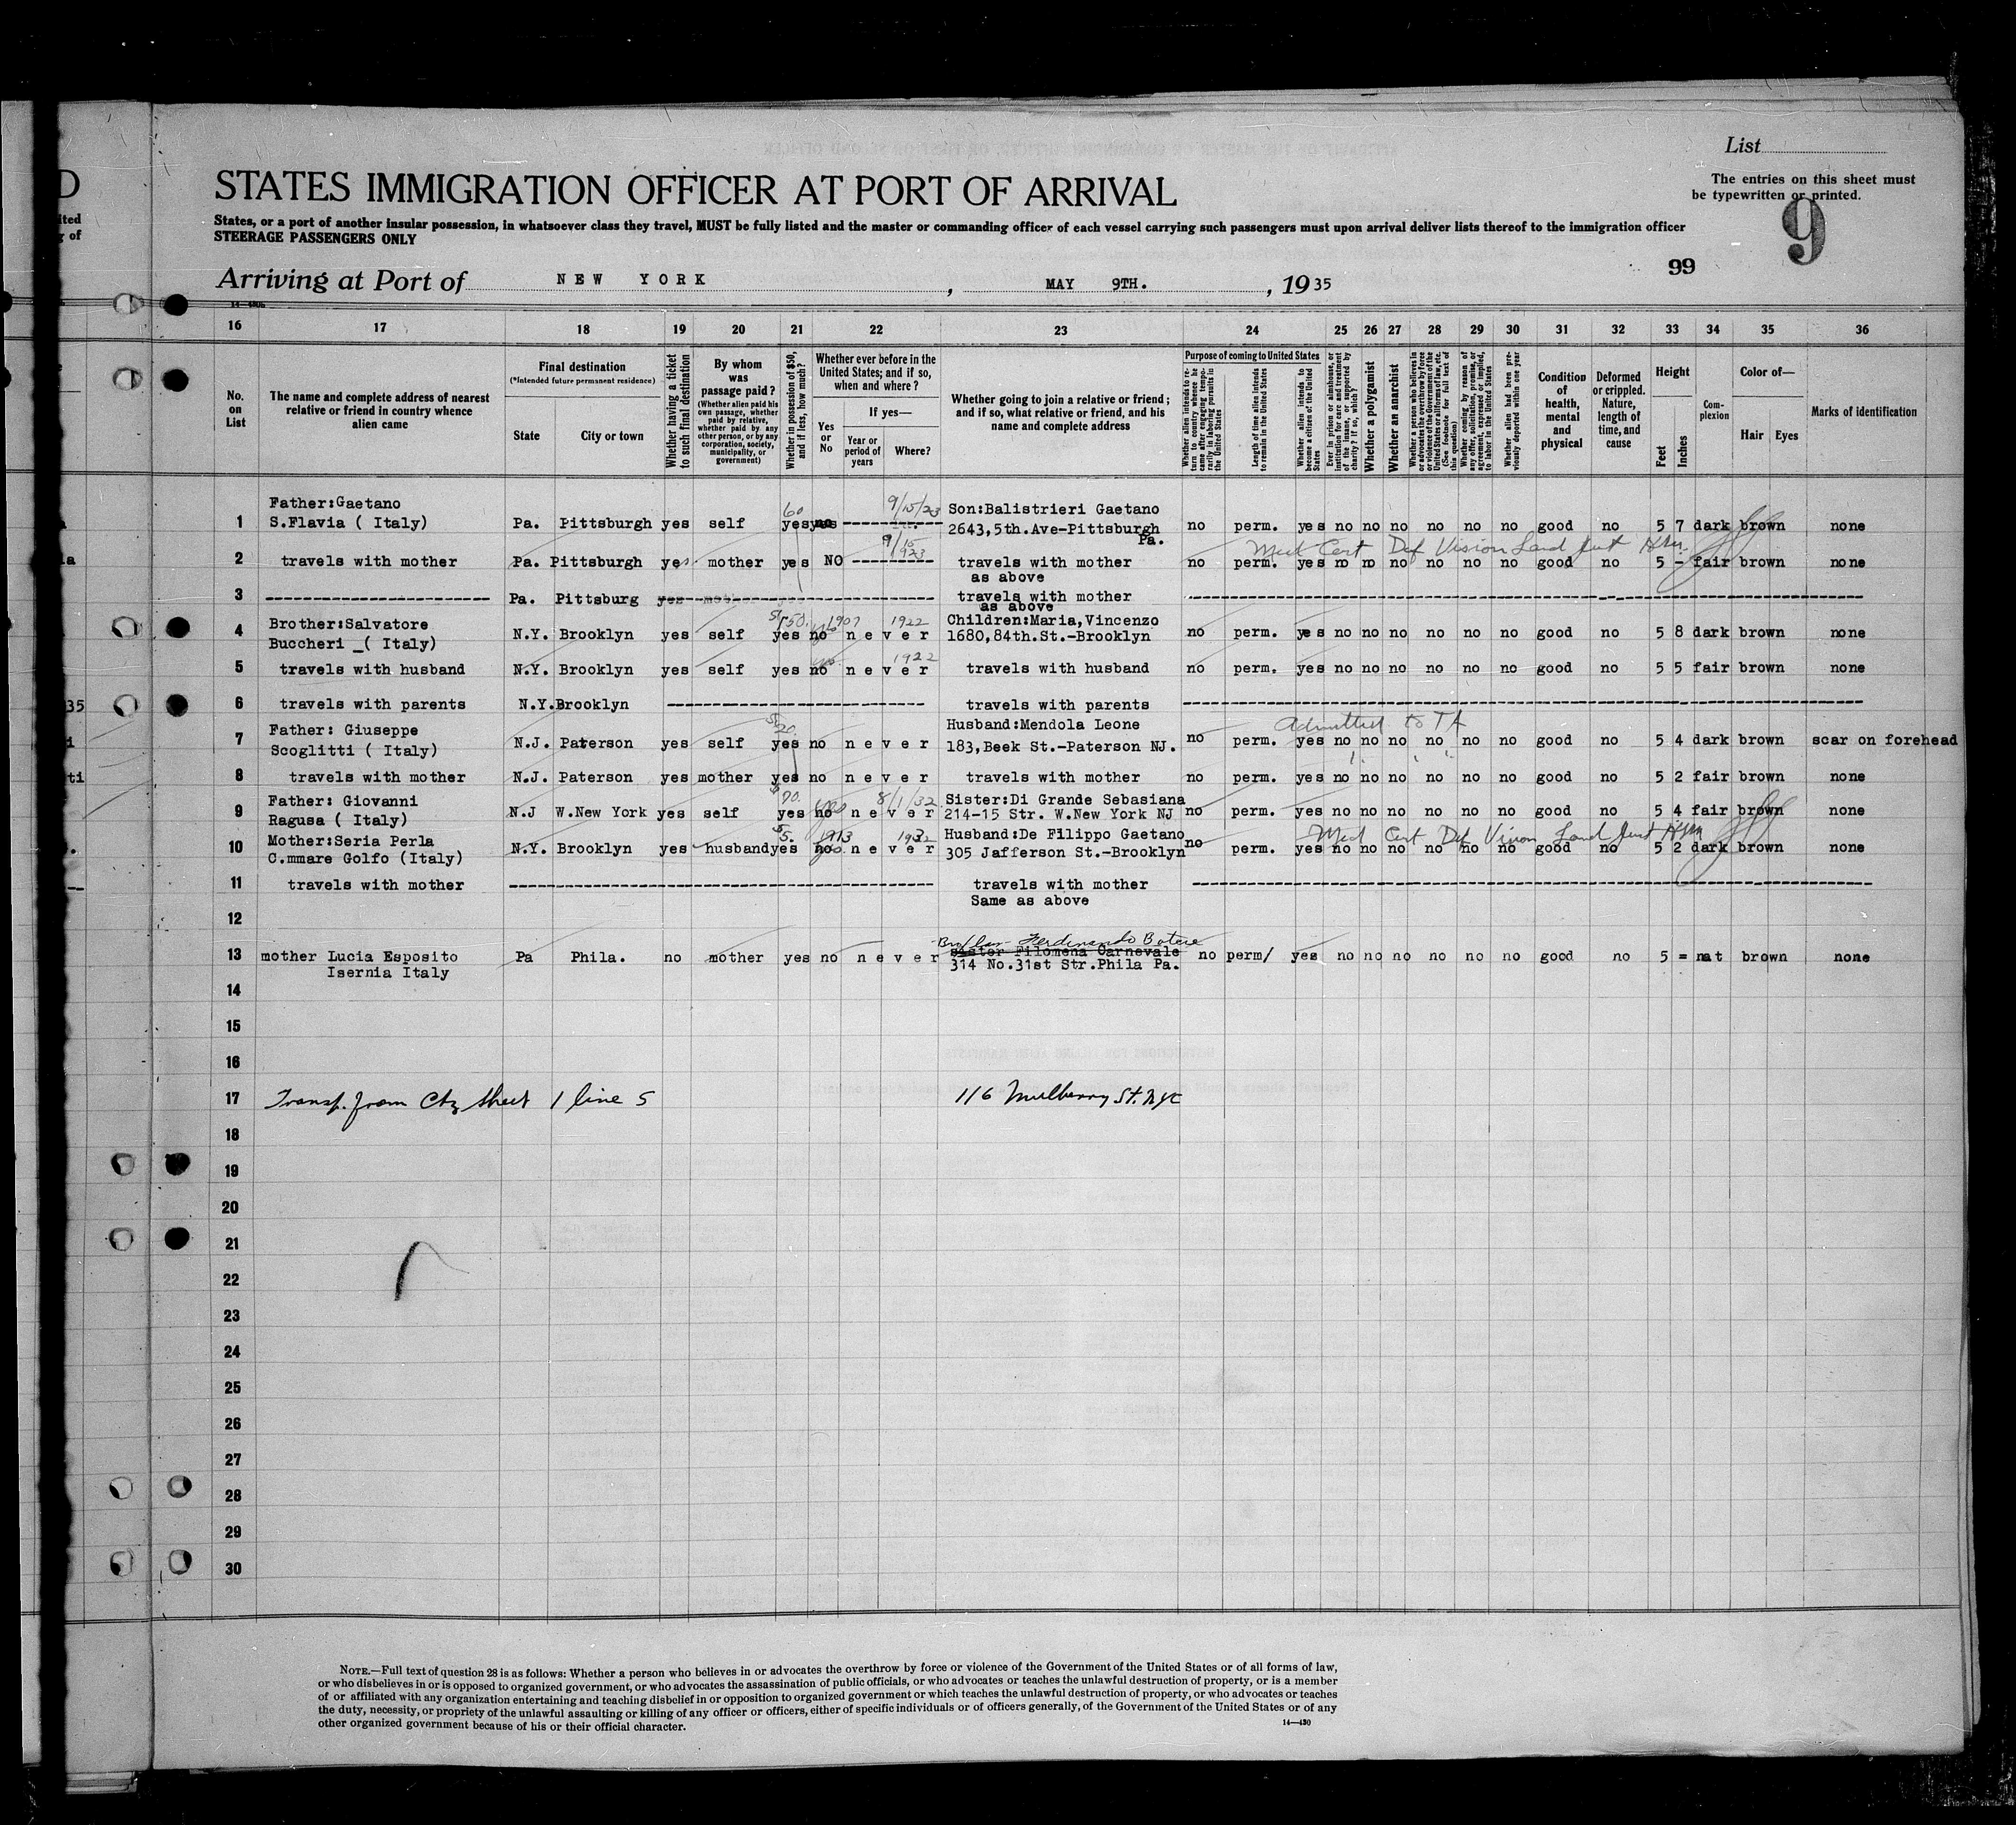 D
ited
g of
List
The entries on this sheet must
be typewritten or printed.
9
STATES IMMIGRATION OFFICER AT PORT OF ARRIVAL
States, or a port of another insular possession, in whatsoever class they travel, MUST be fully listed and the master or commanding officer of each vessel carrying such passengers must upon arrival deliver lists thereof to the immigration officer
STEERAGE PASSENGERS ONLY
99
Arriving at Port of NEW YORK , MAY 9TH. , 1935
16 17 18 19 20 21 22 23 24 25 26 27 28 29 30 31 32 33 34 35 36
No. on List
The name and complete address of nearest relative or friend in country whence alien came
Final destination
(*Intended future permanent residence)
State
City or town
Whether having a ticket to such final destination
By whom was passage paid?
(Whether alien paid his own passage, whether paid by relative, whether paid by any other person, or by any corporation, society, municipality, or government)
Whether in possession of $50, and if less, how much?
Whether ever before in the United States; and if so, when and where?
Yes or No
If yes—
Year or period of years
Where?
Whether going to join a relative or friend; and if so, what relative or friend, and his name and complete address
Purpose of coming to United States
Whether alien intends to return to country whence he came after engaging temporarily in laboring pursuits in the United States
Length of time alien intends to remain in the United States
Whether alien intends to become a citizen of the United States
Ever in prison or almshouse, or institution for care and treatment of the insane, or supported by charity? If so, which?
Whether a polygamist
Whether an anarchist
Whether a person who believes in or advocates the overthrow by force or violence of the Government of the United States or all forms of law, etc. (See footnote for full text of this question)
Whether coming by reason of any offer, solicitation, promise, or agreement, expressed or implied, to labor in the United States
Whether alien had been previously deported within one year
Condition of health, mental and physical
Deformed or crippled. Nature, length of time, and cause
Height
Feet
Inches
Complexion
Color of—
Hair
Eyes
Marks of identification
Father:Gaetano 60 9/15/23 Son:Balistrieri Gaetano
1 S.Flavia ( Italy) Pa. Pittsburgh yes self yes 2643,5th.Ave-Pittsburgh no perm. yes no no no no no no good no 5 7 dark brown none
Pa.
9/15
1923
Med Cert Def Vision Land
2 travels with mother Pa. Pittsburgh yes mother yes NO travels with mother no perm. yes no no no no no no good no 5 - fair brown none
as above
3 Pa. Pittsburg yes mother travels with mother
as above
Brother:Salvatore $50. 1907 1922 Children:Maria,Vincenzo
4 Buccheri ( Italy) N.Y. Brooklyn yes self yes no never 1680,84th.St.-Brooklyn no perm. yes no no no no no no good no 5 8 dark brown none
yes 1922
5 travels with husband N.Y. Brooklyn yes self yes no never travels with husband no perm. yes no no no no no no good no 5 5 fair brown none
35
6 travels with parents N.Y.Brooklyn travels with parents
Father: Giuseppe $20. Husband:Mendola Leone Admitted to TA
7 Scoglitti ( Italy) N.J. Paterson yes self yes no never 183,Beek St.-Paterson NJ. no perm. yes no no no no no no good no 5 4 dark brown scar on forehead
ti
8 travels with mother N.J. Paterson yes mother yes no never travels with mother no perm. yes no no no no no no good no 5 2 fair brown none
Father: Giovanni $70. yes 8/1/32 Sister:Di Grande Sebasiana
9 Ragusa ( Italy) N.J W.New York yes self yes no never 214-15 Str. W.New York NJ no perm. yes no no no no no no good no 5 4 fair brown none
Mother:Seria Perla $5. 1913 1932 Husband:De Filippo Gaetano Med Cert Def Vision Land
10 C.mmare Golfo (Italy) N.Y. Brooklyn yes husband yes no never 305 Jafferson St.-Brooklyn no perm. yes no no no no no no good no 5 2 dark brown none
yes
11 travels with mother travels with mother
Same as above
12
Ferdinando
Sister Filomena Carnevale
13 mother Lucia Esposito Pa Phila. no mother yes no never 314 No.31st Str.Phila Pa. no perm/ yes no no no no no no good no 5 = nat brown none
Isernia Italy
14
15
16
17 Transf. from Ctz sheet 1 line 5 116 Mulberry St. NYC
18
19
20
21
22
23
24
25
26
27
28
29
30
NOTE.—Full text of question 28 is as follows: Whether a person who believes in or advocates the overthrow by force or violence of the Government of the United States or of all forms of law,
or who disbelieves in or is opposed to organized government, or who advocates the assassination of public officials, or who advocates or teaches the unlawful destruction of property, or is a member
of or affiliated with any organization entertaining and teaching disbelief in or opposition to organized government or which teaches the unlawful destruction of property, or who advocates or teaches
the duty, necessity, or propriety of the unlawful assaulting or killing of any officer or officers, either of specific individuals or of officers generally, of the Government of the United States or of any
other organized government because of his or their official character.
14—430